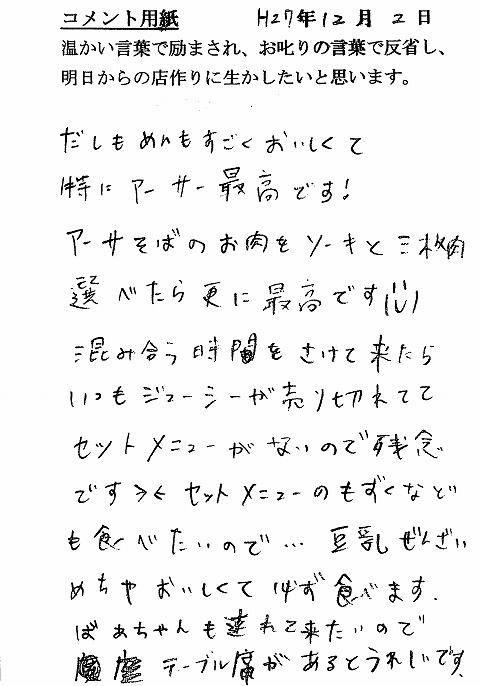 コメント用紙 H27年12月2日
温かい言葉で励まされ、お叱りの言葉で反省し、
明日からの店作りに生かしたいと思います。
だしもめんもすごくおいしくて
特にアーサー最高です!
アーサそばのお肉をソーキと三枚肉
選べたら更に最高です
混み合う時間をさけて来たら
いつもジューシーが売り切れてて
セットメニューがないので残念
です>< セットメニューのもずくなど
も食べたいので… 豆乳ぜんざい
めちゃおいしくて必ず食べます.
ばあちゃんも連れて来たいので
テーブル席があるとうれしいです.